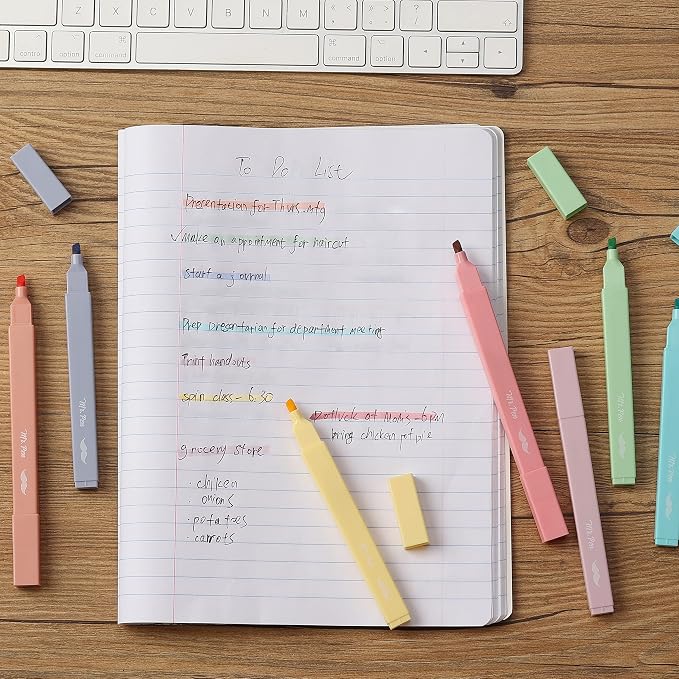 control
option
command
command
option
To Do List
Presentation for Thurs. mtg
✓ Make an appointment for haircut
start a journal
Prep presentation for department meeting
Print handouts
spin class - 6:30
Potluck at Mom's - 6pm
bring chicken pot pie
grocery store
· chicken
· onions
· potatoes
· carrots
Mr. Pen
Mr. Pen
Mr. Pen
Mr. Pen
Mr. Pen
Mr. Pen
Mr. Pen